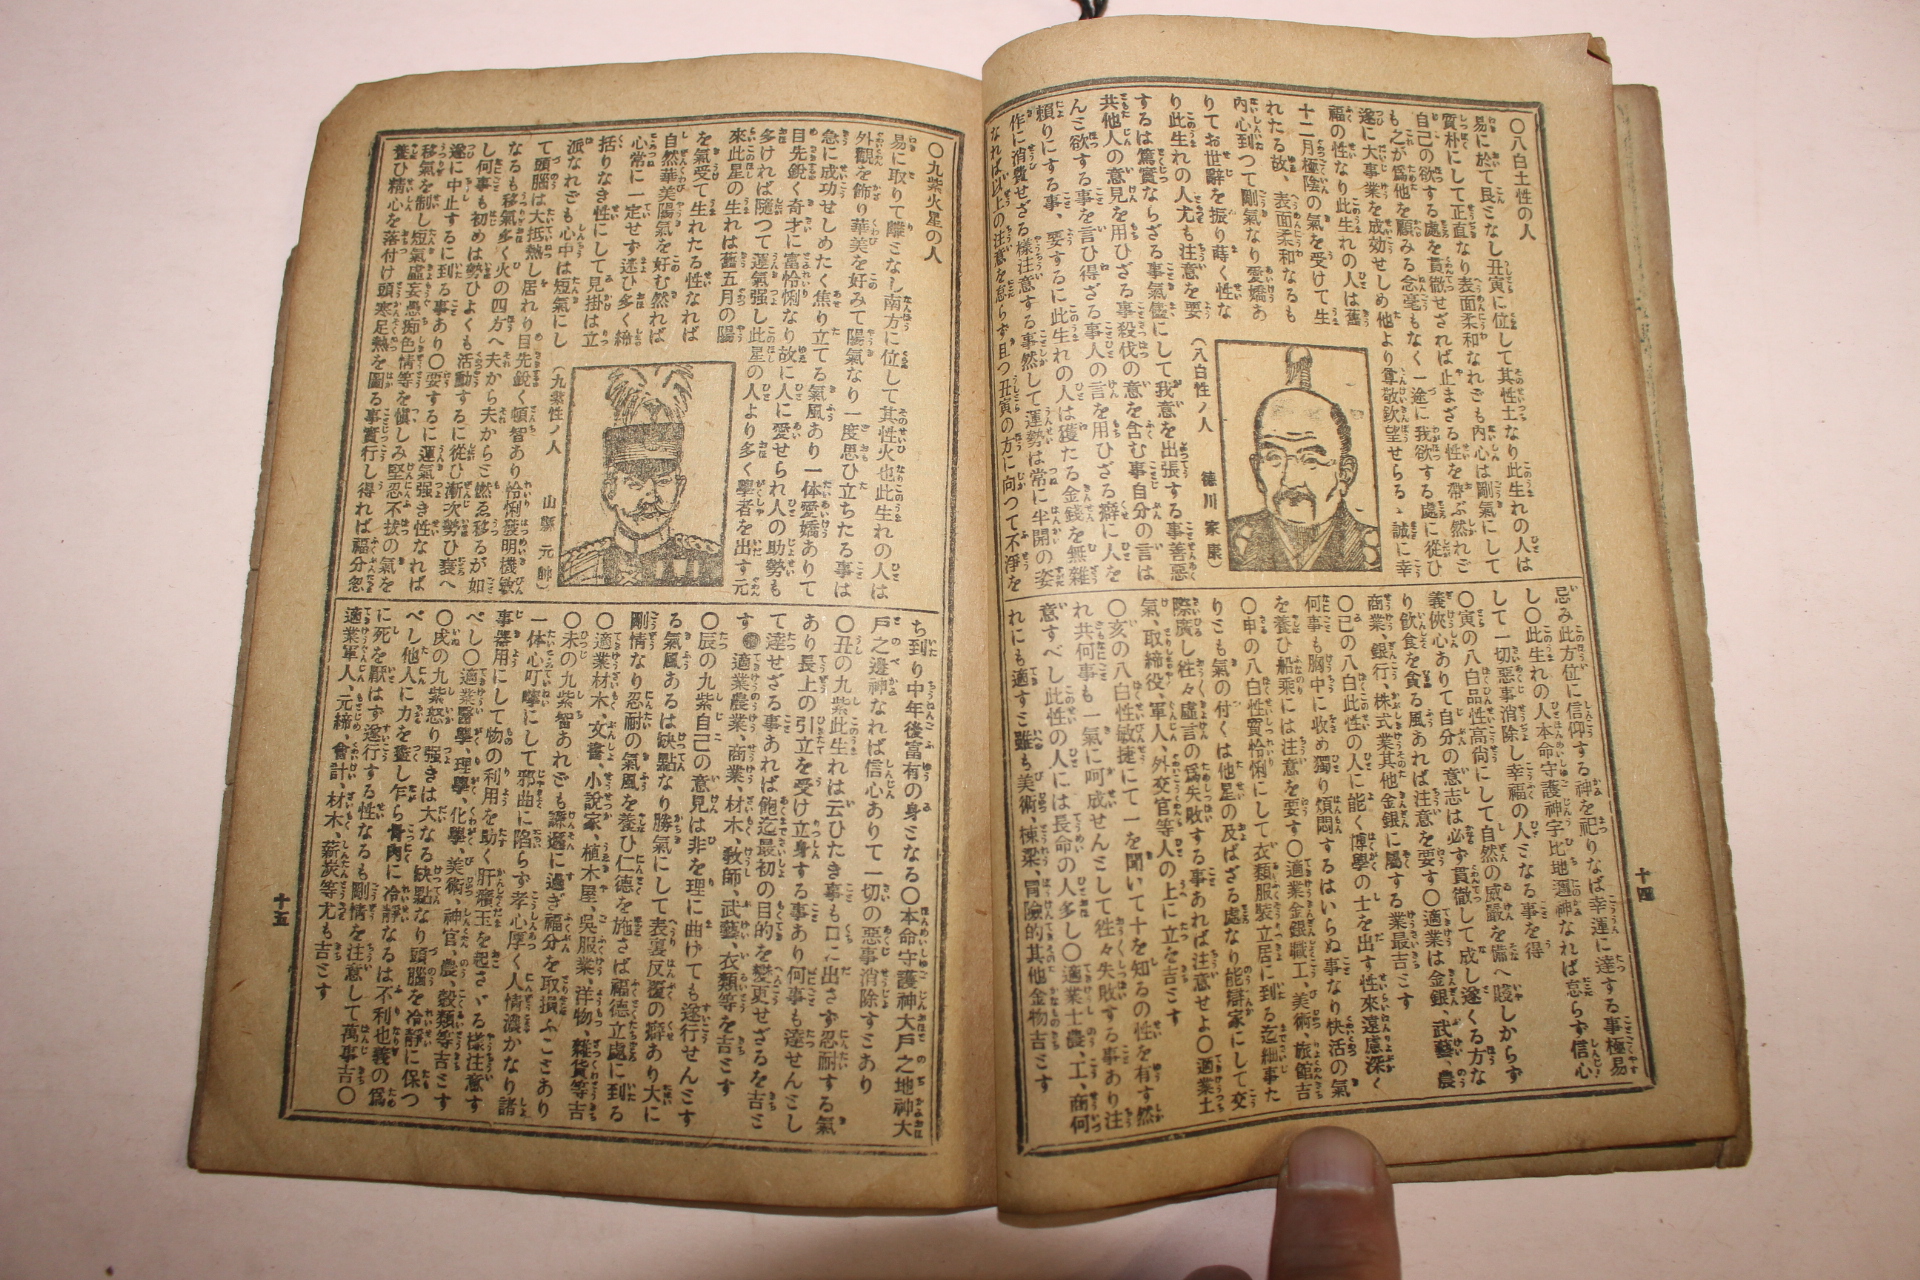 〇八白土性の人
易に於て艮ミなし丑寅に位して其性土なり此生れの人は
質朴にして正直なり表面柔和なれども内心は剛氣にして
自己の欲する處を貫徹せざれば止まざる性を帶ぶ然れご
も之が爲他を顧みる念毫もなく一途に我欲する處に從ひ
遂に大事業を成効せしめ他より尊敬欽望せらる、誠に幸
福の性なり此生れの人は舊
十二月極陰の氣を受けて生
れたる故、表面柔和なるも
内心到つて剛氣なり愛嬌あ
りてお世辭を振り蒔く性な
り此生れの人尤も注意を要
するは篤實ならざる事氣儘にして我意を出張する事善惡
共他人の意見を用ひざる事殺伐の意を含む事自分の言は
んミ欲する事を言ひ得ざる事人の言を用ひざる癖に人を
頼りにする事、要するに此生れの人は獲たる金錢を無雜
作に消費せざる樣注意する事然して運勢は常に半開の姿
なれば以上の注意を怠らず且つ丑寅の方に向つて不淨を
(八白性ノ人 德川家康)
忌み此方位に信仰する神を祀りなば幸運に達する事極易
し〇此生れの人本命守護神字比地邇神なれば忘らず信心
して一切惡事消除し幸福の人ミなる事を得
〇寅の八白品性高尙にして自然の威嚴を備へ賤しからず
義俠心ありて自分の意志は必ず貫徹して成し遂くる方な
り飮食を貪る風あれば注意を要す〇適業は金銀、武藝、農
商業、銀行、株式業其他金銀に屬する業最吉ミす
〇巳の八白此性の人に能く博學の士を出す性來遠慮深く
何事も胸中に收め獨り煩悶するはいらぬ事なり快活の氣
を養ひ船乘には注意を要す〇適業金銀職工、美術、旅館吉
〇申の八白性質怜悧にして衣類服裝立居に到る迄細事た
りミも氣の付くは他星の及ばざる處なり能辯家にして交
際廣し徃々虛言の爲失敗する事あれば注意せよ〇適業土
氣、取締役、軍人、外交官等人の上に立を吉ミす
〇亥の八白性敏捷にて一を聞いて十を知るの性を有す然
れ共何事も一氣に呵成せんミして徃々失敗する事あり注
意すべし此性の人には長命の人多し〇適業士農、工、商何
れにも適すミ雖も美術、棟梁、冒險的其他金物吉ミす
十四
〇九紫火星の人
易に取りて離ミなし南方に位して其性火也此生れの人は
外觀を飾り華美を好みて陽氣なり一度思ひ立ちたる事は
急に成功せしめたく焦り立てる氣風あり一体愛嬌ありて
目先銳く奇才に富怜悧なり故に人に愛せられ人の助勢も
多ければ隨つて運氣强し此星の人より多く學者を出す元
來此星の生れは舊五月の陽
を氣受て生れたる性なれば
自然華美陽氣を好む然れば
心常に一定せず迷ひ多く締
括りなき性にして見掛は立
派なれども心中は短氣にし
て頭腦は大抵熱し居れり目先銳く頓智あり怜悧發明機敏
なるも移氣多く火の四方へ夫から夫からミ燃ゑ移るが如
し何事も初めは勢ひよくも活動するに從ひ漸次勢ひ衰へ
遂に中止するに到る事あり〇要するに運氣强き性なれば
移氣を制し短氣虛妄愚痴色情等を愼しみ堅忍不拔の氣を
養ひ精心を落付け頭寒足熱を圖る事實行し得れば福分忽
(九紫性ノ人 山縣元帥)
ち到り中年後富有の身ミなる〇本命守護神大戶之地神大
戶之邊神なれば信心ありて一切の惡事消除すミあり
〇丑の九紫此生れは云ひたき事も口に出さず忍耐する氣
あり長上の引立を受け立身する事あり何事も達せんミし
て達せざる事あれば飽迄最初の目的を變更せざるを吉ミ
す●適業農業、商業、材木、敎師、武藝、衣類等を吉ミす
〇辰の九紫自己の意見は非を理に曲けても遂行せんミす
る氣風あるは缺點なり勝氣にして表裏反覆の癖あり大に
剛情なり忍耐の氣風を養ひ仁德を施さば福德立處に到る
〇適業材木、文書、小說家、植木屋、吳服業、洋物、雜貨等吉
〇未の九紫智あれども謙遜に過ぎ福分を取損ふこミあり
一体心叮嚀にして邪曲に陷らず孝心厚く人情濃かなり諸
事器用にして物の利用を助く肝癪玉を起さゞる樣注意す
べし〇適業醫學、理學、化學、美術、神官、農、穀類等吉ミす
〇戌の九紫怒り强きは大なる缺點なり頭腦を冷靜に保つ
べし他人に力を盡し乍ら骨肉に冷靜なるは不利也義の爲
に死を厭はず遂行する性なるも剛情を注意して萬事吉〇
適業軍人、元締、會計、材木、薪炭等尤も吉ミす
十五